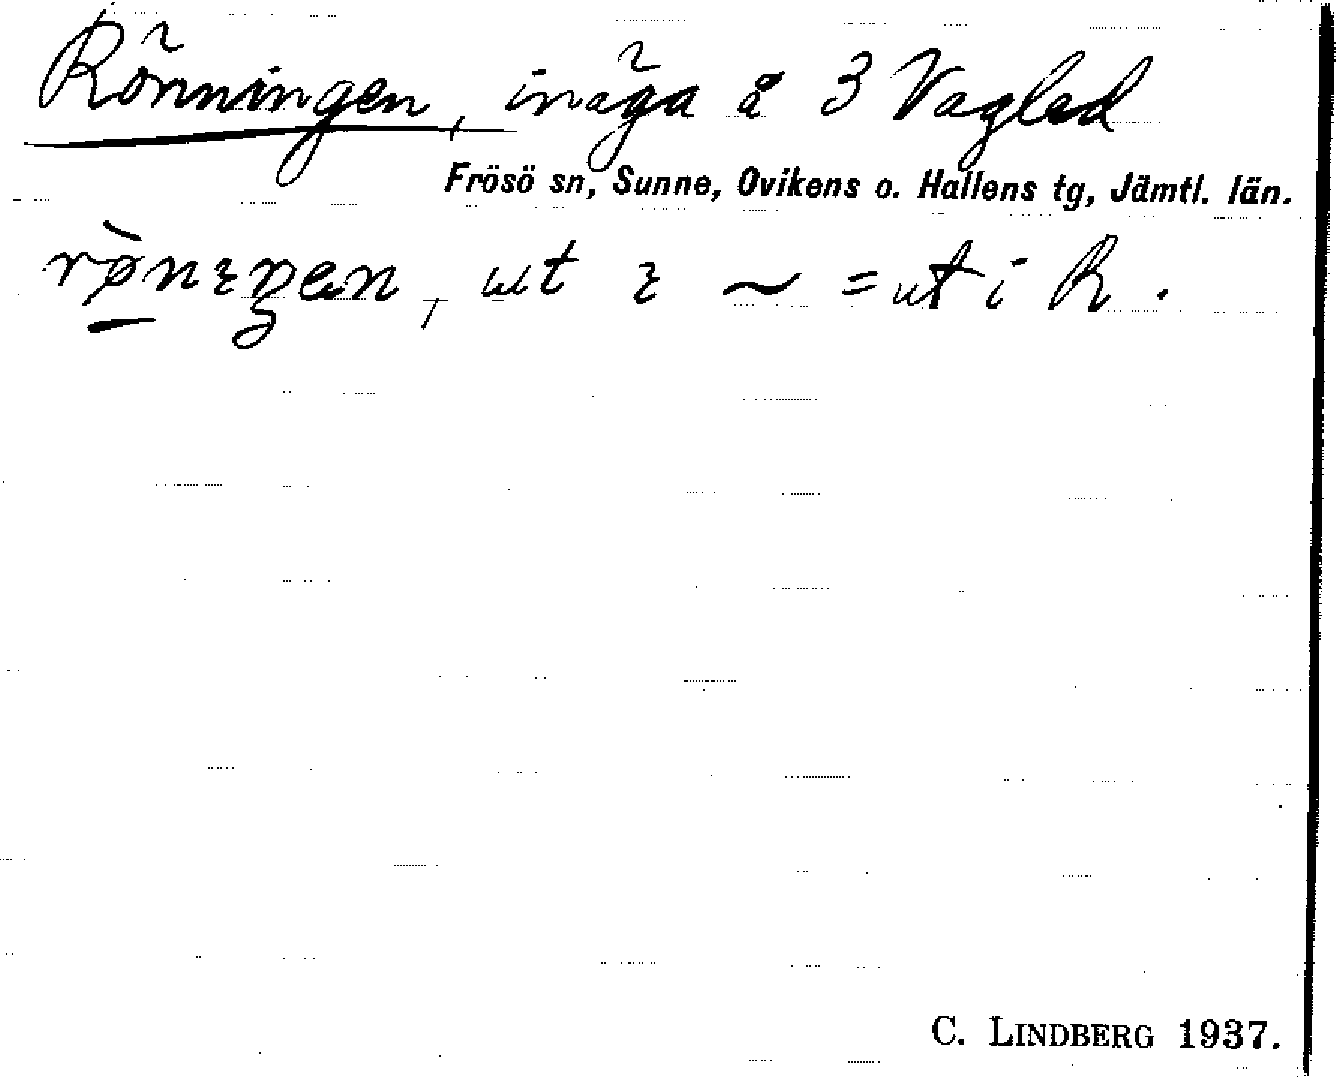 Rönningen, inäga å 3 Vagled
Frösö sn, Sunne, Ovikens o. Hallens tg, Jämtl. län.
rø̀nɪŋen, ut ɪ ~ = ut i R.
C. LINDBERG 1937.